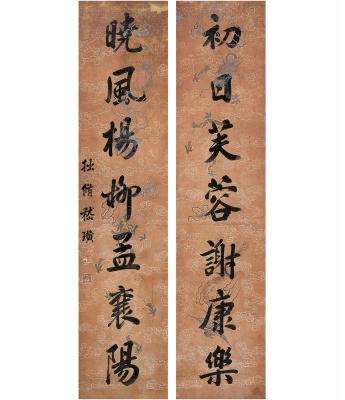 初日芙蓉謝康樂
曉風楊柳孟襄陽
拙脩嵇璜